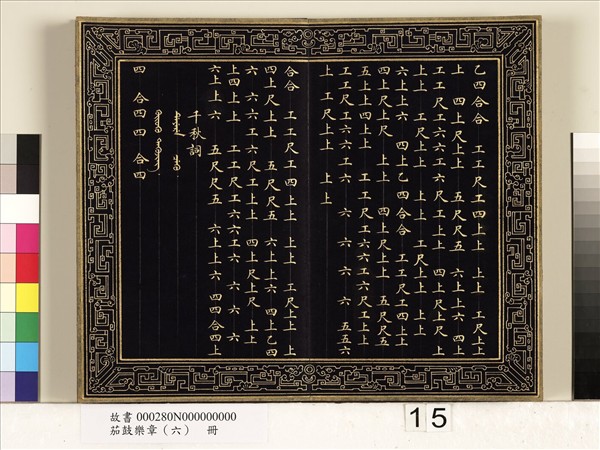 乙四合合 工工尺工四上上 上上 工尺上上
上 四上尺上上 五尺尺五 六上上六 四上
工工尺工六六工六尺工上上 四上尺上尺 上
上上 工尺上上 上上 工尺上上 上上
六上上六 四上乙四合合 工工尺工四上上
四上尺上尺 上上 四上尺上上 五尺尺五
五上上四上上 工工尺工六六工六尺工上上
工工尺工六六工六 六 六 六 五五六
上 工尺上上 上上
合合 工工尺工四上上 上上 工尺上上 上
四上尺上上 五尺尺五 六上上六 四上乙四
六 六六工六尺工上上 四上尺上尺 上上
上四上上 工工尺工六六工六 六 六 六
六上上六 五尺尺五 六上上六 四四合四上
千秋詞
四 合四四 合四
故書 000280N000000000
笳鼓樂章(六) 冊
15